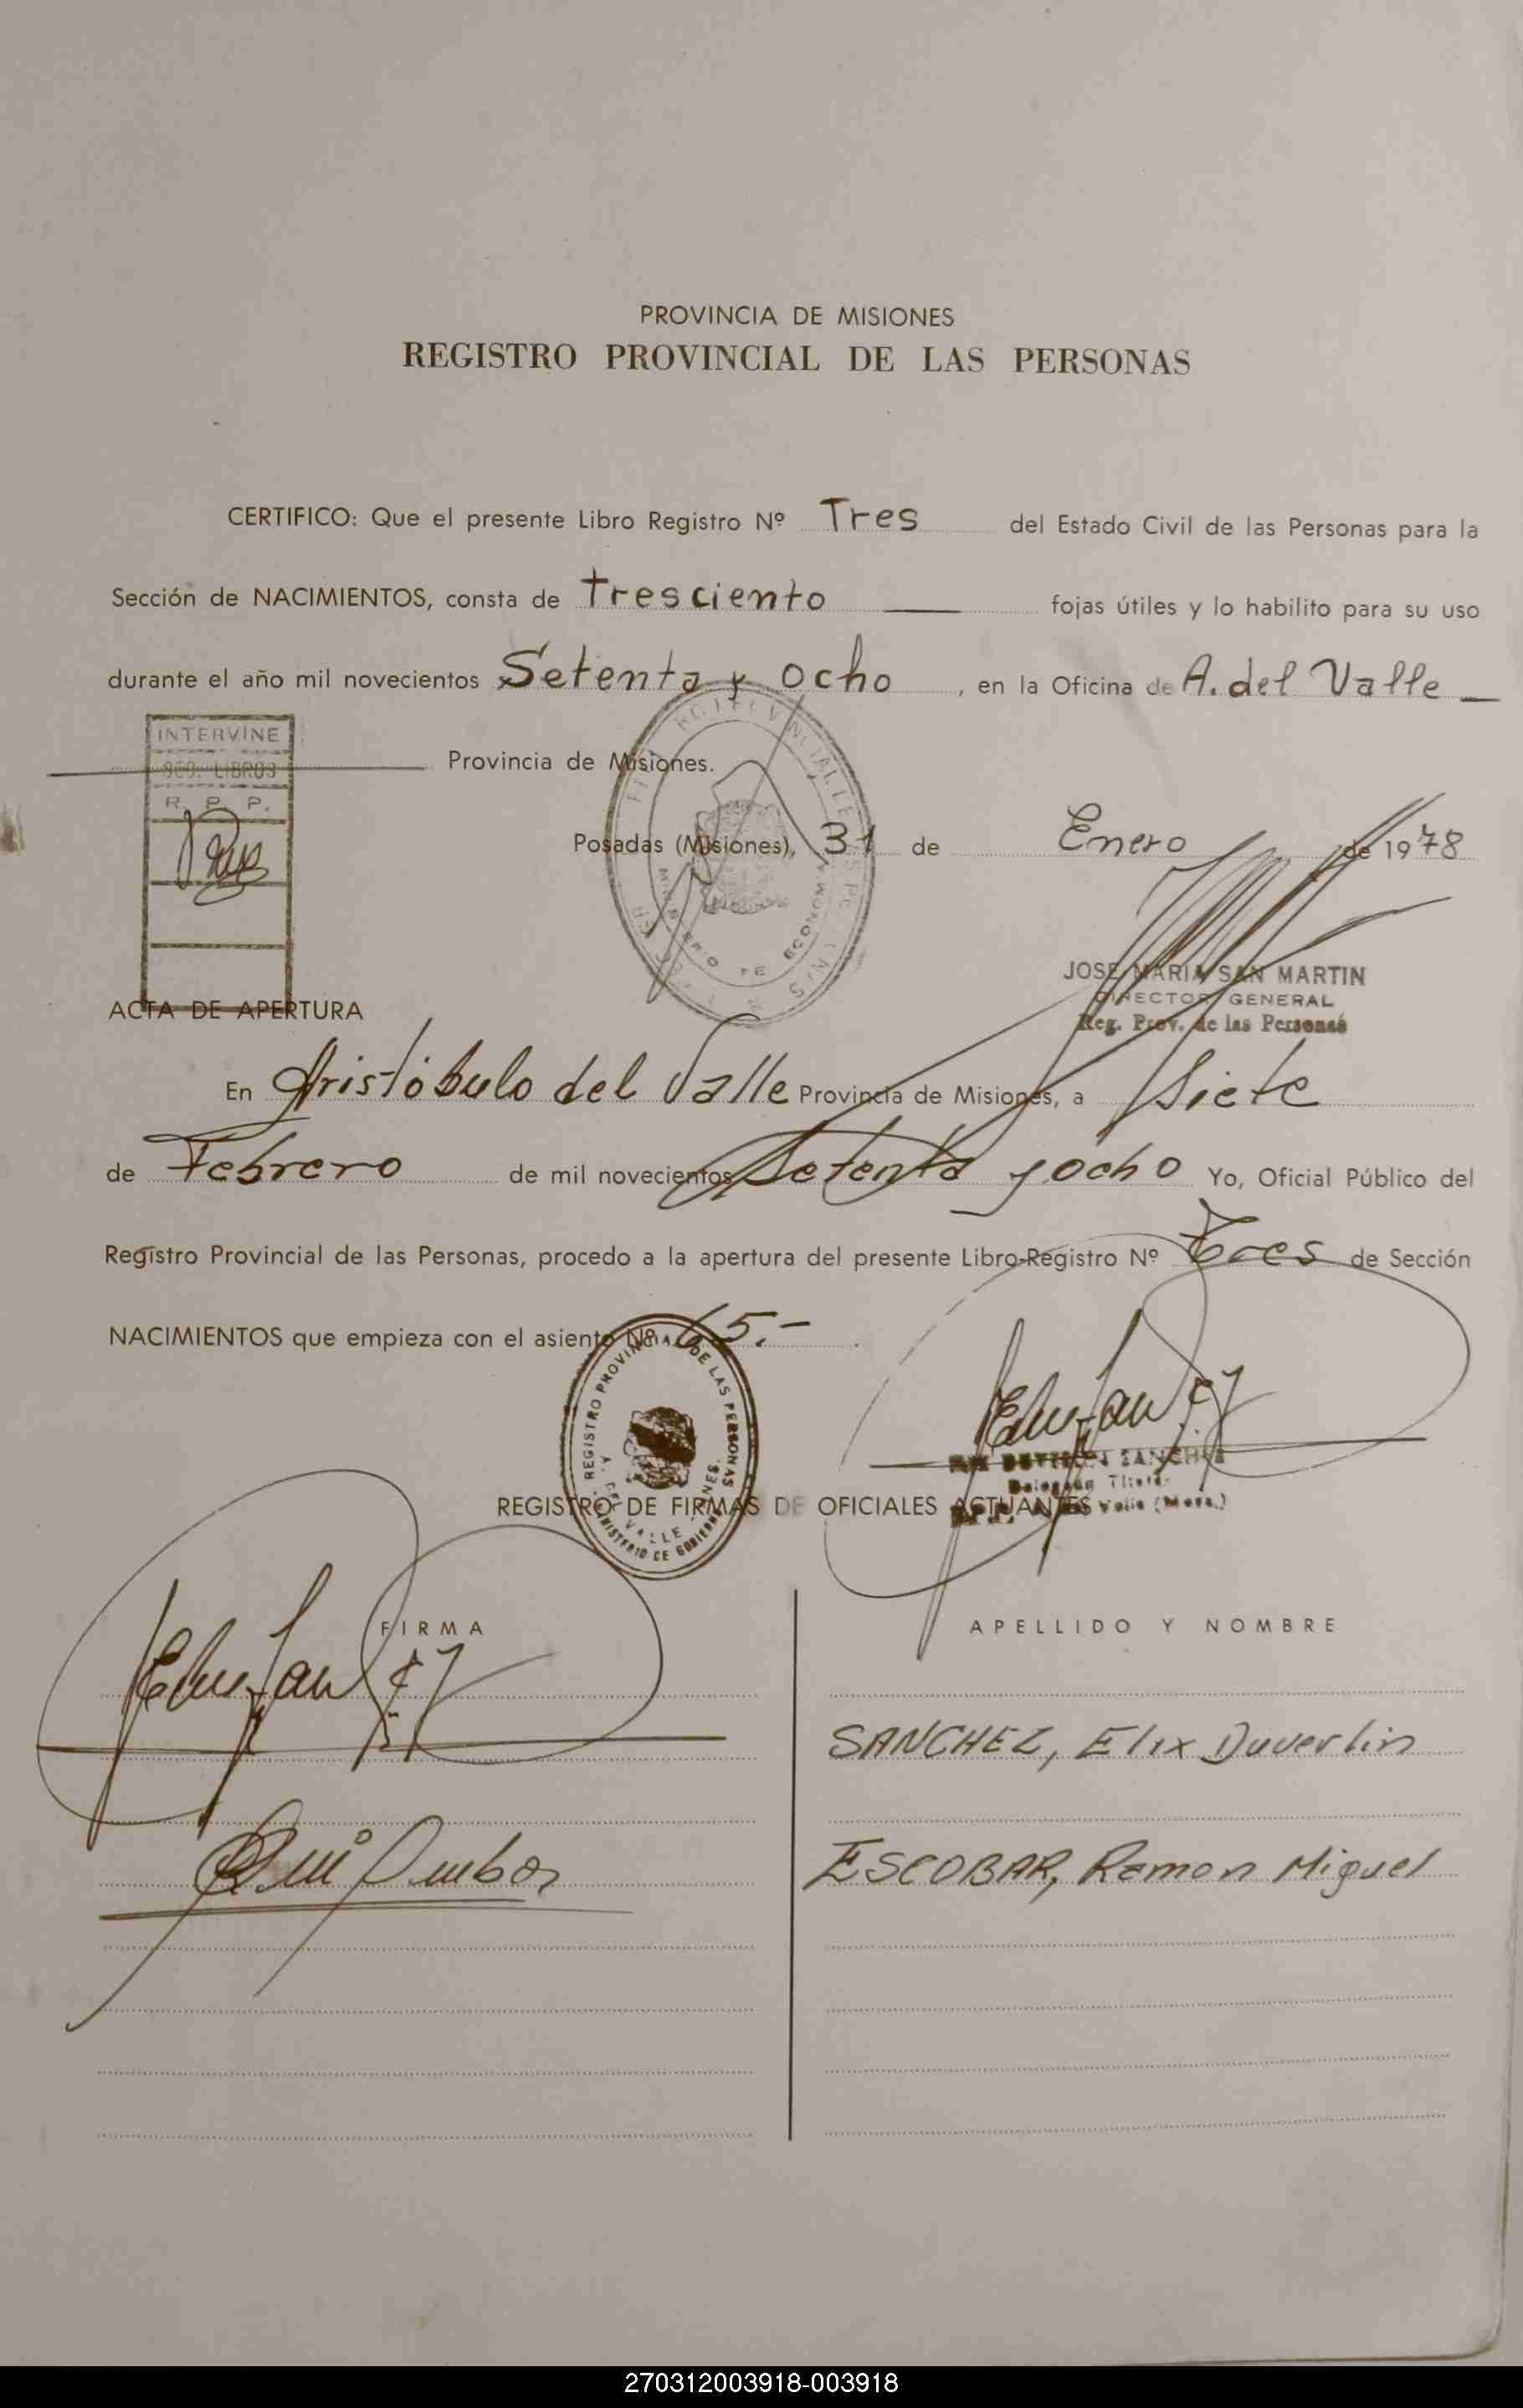 PROVINCIA DE MISIONES
REGISTRO PROVINCIAL DE LAS PERSONAS
CERTIFICO: Que el presente Libro Registro Nº Tres del Estado Civil de las Personas para la
Sección de NACIMIENTOS, consta de Tresciento fojas útiles y lo habilito para su uso
durante el año mil novecientos Setenta y ocho, en la Oficina de A. del Valle
INTERVINE
SEC. LIBROS
R. P. P.
Provincia de Misiones.
Posadas (Misiones), 31 de Enero de 1978
JOSE MARIA SAN MARTIN
DIRECTOR GENERAL
Reg. Prov. de las Personas
ACTA DE APERTURA
En Aristóbulo del Valle Provincia de Misiones, a Siete
de Febrero de mil novecientos Setenta y ocho Yo, Oficial Público del
Registro Provincial de las Personas, procedo a la apertura del presente Libro-Registro Nº Tres de Sección
NACIMIENTOS que empieza con el asiento Nº 65.-
REGISTRO PROVINCIAL DE LAS PERSONAS
A. DEL VALLE
MINISTERIO DE GOBIERNO
SANCHEZ
REGISTRO DE FIRMAS DE OFICIALES ACTUANTES
FIRMA
APELLIDO Y NOMBRE
SANCHEZ, Elix Duverlin
ESCOBAR, Ramon Miguel
270312003918-003918